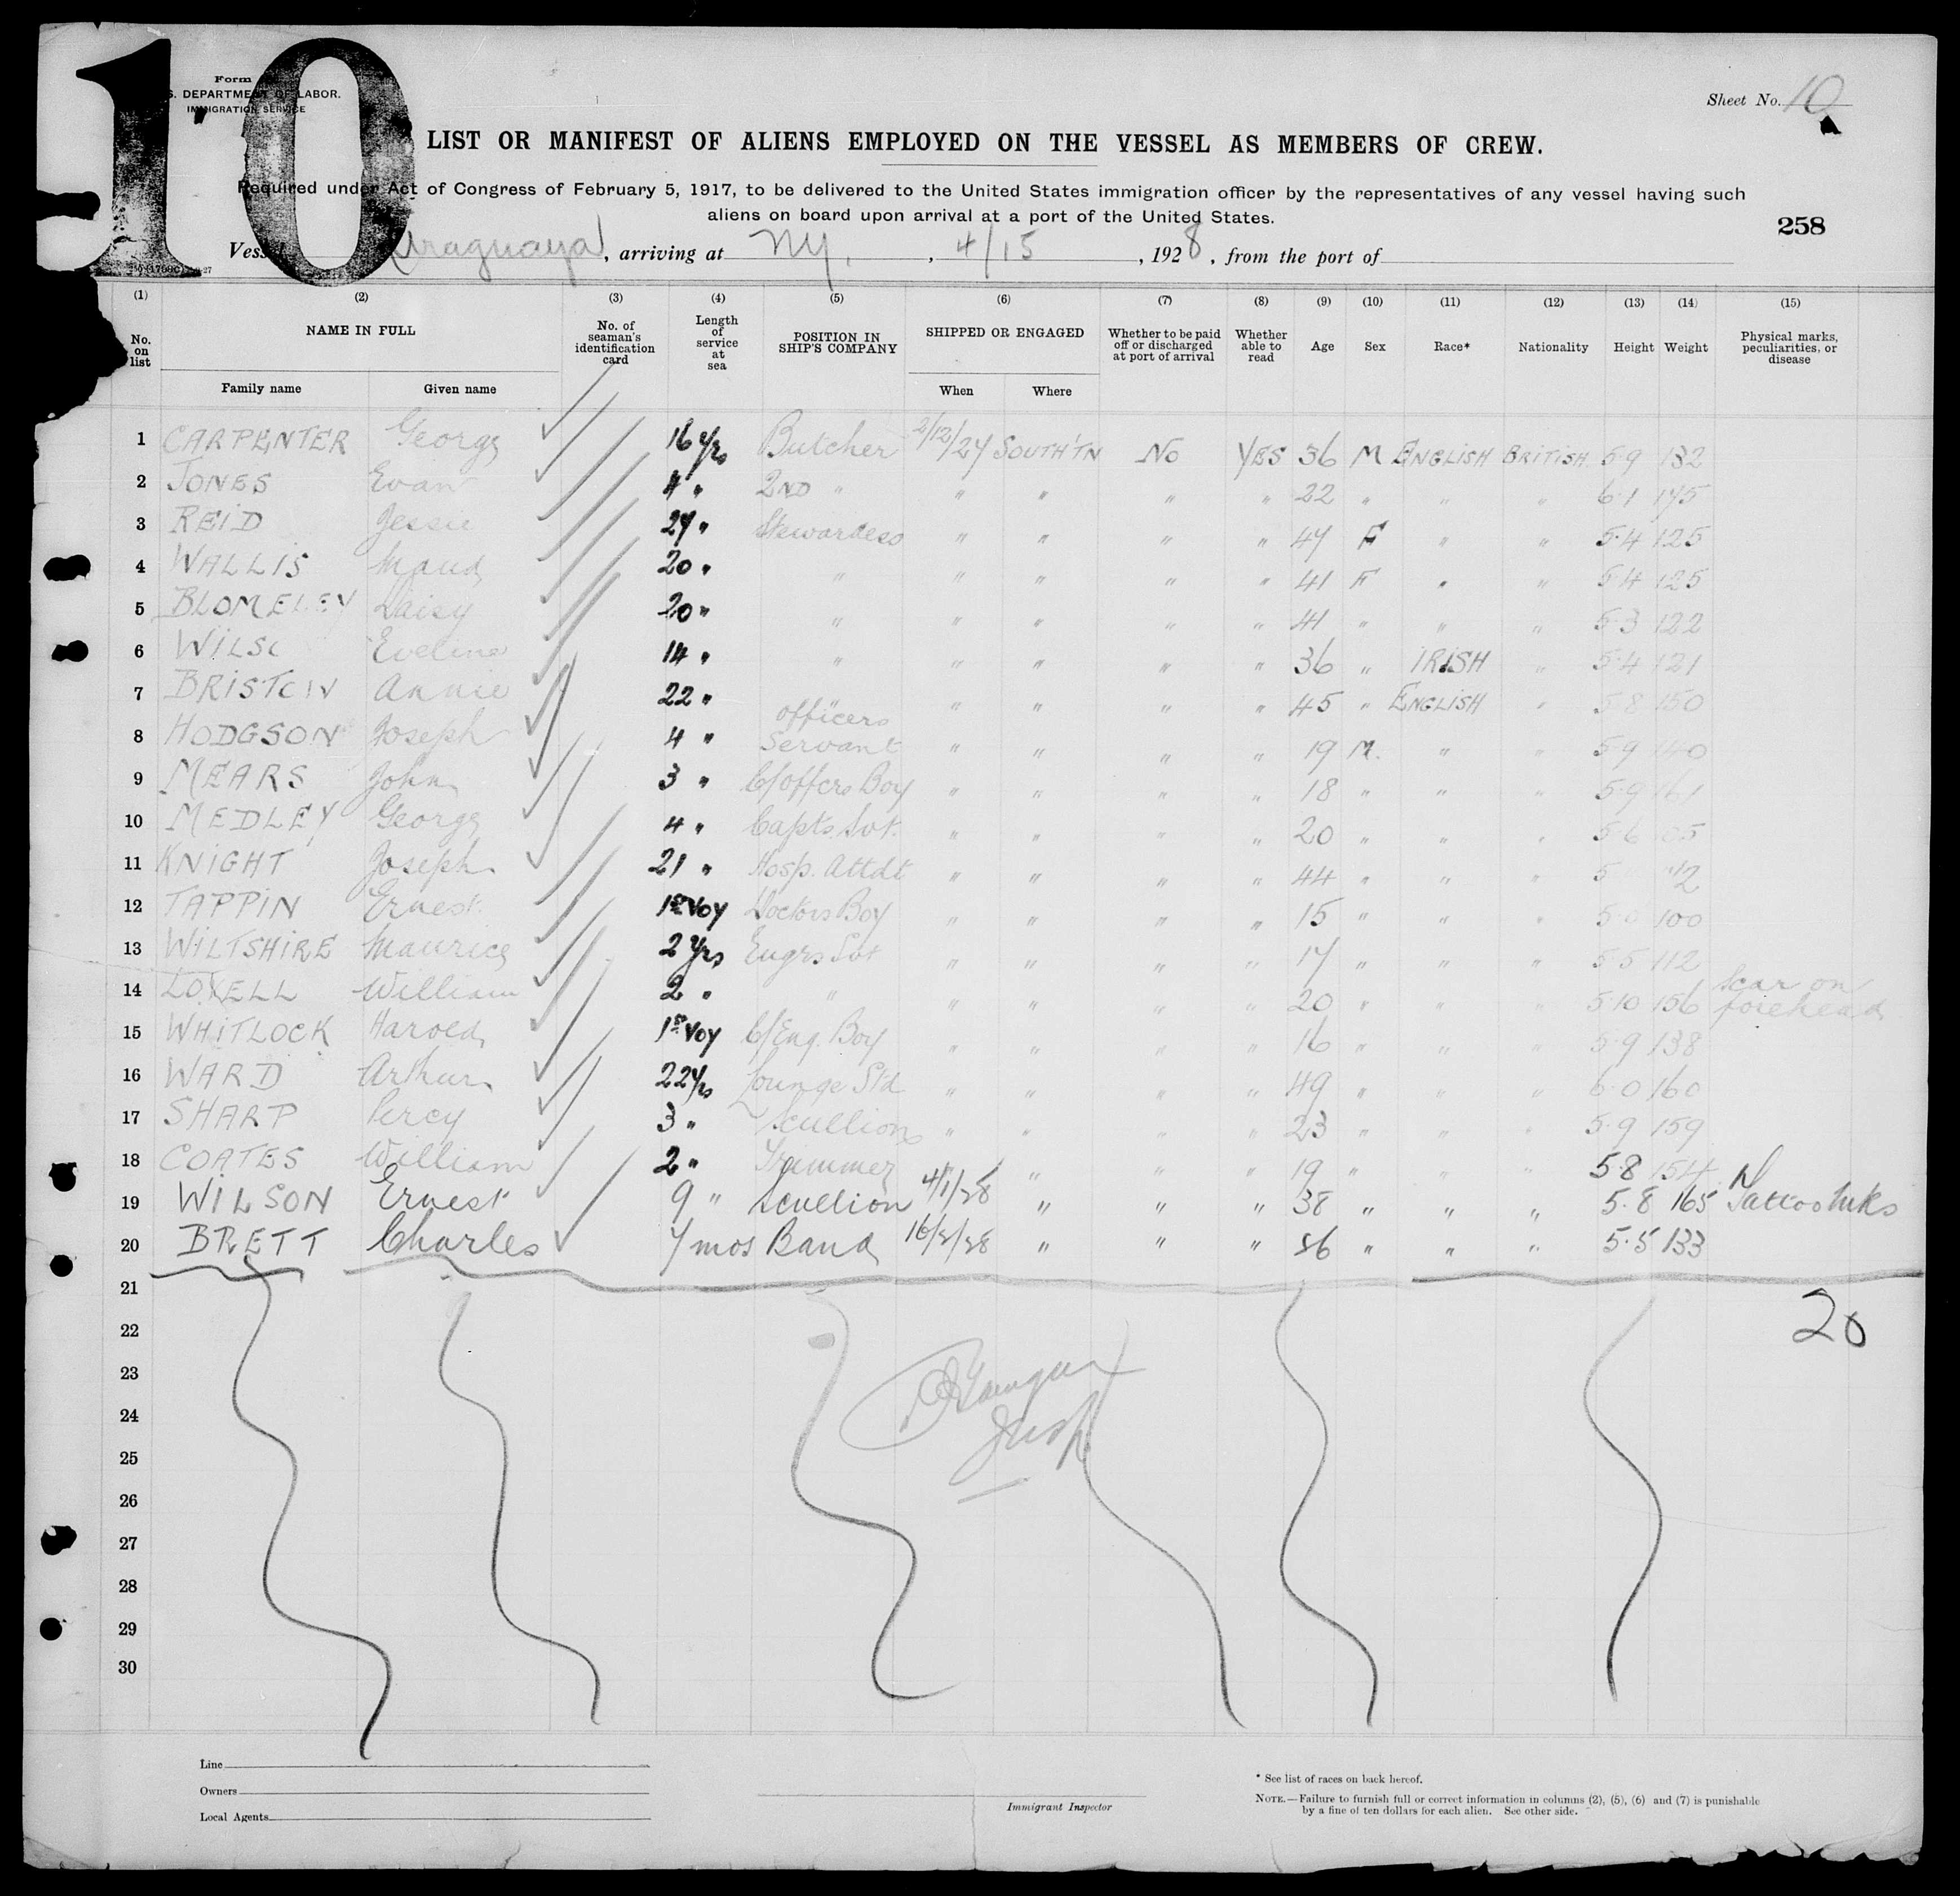 10
Form
S. DEPARTMENT OF LABOR.
IMMIGRATION SERVICE
Sheet No. 10
LIST OR MANIFEST OF ALIENS EMPLOYED ON THE VESSEL AS MEMBERS OF CREW.
Required under Act of Congress of February 5, 1917, to be delivered to the United States immigration officer by the representatives of any vessel having such
aliens on board upon arrival at a port of the United States.
258
Vessel Araguaya, arriving at NY, 4/15, 1928, from the port of
(1) (2) (3) (4) (5) (6) (7) (8) (9) (10) (11) (12) (13) (14) (15)
No. on list NAME IN FULL No. of seaman's identification card Length of service at sea POSITION IN SHIP'S COMPANY SHIPPED OR ENGAGED Whether to be paid off or discharged at port of arrival Whether able to read Age Sex Race* Nationality Height Weight Physical marks, peculiarities, or disease
Family name Given name When Where
1 CARPENTER George 16 yrs Butcher 2/12/27 SOUTH'TN No YES 36 M ENGLISH BRITISH 5·9 132
2 JONES Evan 4 " 2ND " " " " " 22 " " " 6·1 175
3 REID Jessie 27 " Stewardess " " " " 47 F " " 5·4 125
4 WALLIS Maud 20 " " " " " " 41 F " " 5·4 125
5 BLOMELEY Daisy 20 " " " " " " 41 " " " 5·3 122
6 Eveline 14 " " " " " " 36 " IRISH " 5·4 121
7 BRISTOW Annie 22 " " " " " 45 " ENGLISH " 5·8 150
8 HODGSON Joseph 4 " officers Servant " " " " 19 M. " " 5·9 140
9 MEARS John 3 " C/offcrs Boy " " " " 18 " " " 5·9 161
10 MEDLEY George 4 " Capts. Svt. " " " " 20 " " " 5·6
11 KNIGHT Joseph 21 " Hosp. Attdt " " " " 44 " " " 5
12 TAPPIN Ernest 1st Voy Doctors Boy " " " " 15 " " " 100
13 WILTSHIRE Maurice 2 yrs Engrs Svt " " " " 17 " " " 5·5 112
14 LOVELL William 2 " " " " " " 20 " " " 5·10 156 Scar on forehead
15 WHITLOCK Harold 1st Voy C/Eng. Boy " " " " 16 " " " 5·9 138
16 WARD Arthur 22 yrs Lounge Std " " " " 49 " " " 6·0 160
17 SHARP Percy 3 " Scullion " " " " 23 " " " 5·9 159
18 COATES William 2 " Trimmer " " " 19 " " " 5·8 154
19 WILSON Ernest 9 " Scullion 4/1/28 " " " 38 " " " 5·8 165
20 BRETT Charles 7 mos Band 16/2/28 " " " " " " 5·5 133
21
20
22
23
24
25
26
27
28
29
30
Line
Owners
Local Agents
Immigrant Inspector
* See list of races on back hereof.
NOTE.—Failure to furnish full or correct information in columns (2), (5), (6) and (7) is punishable
by a fine of ten dollars for each alien. See other side.